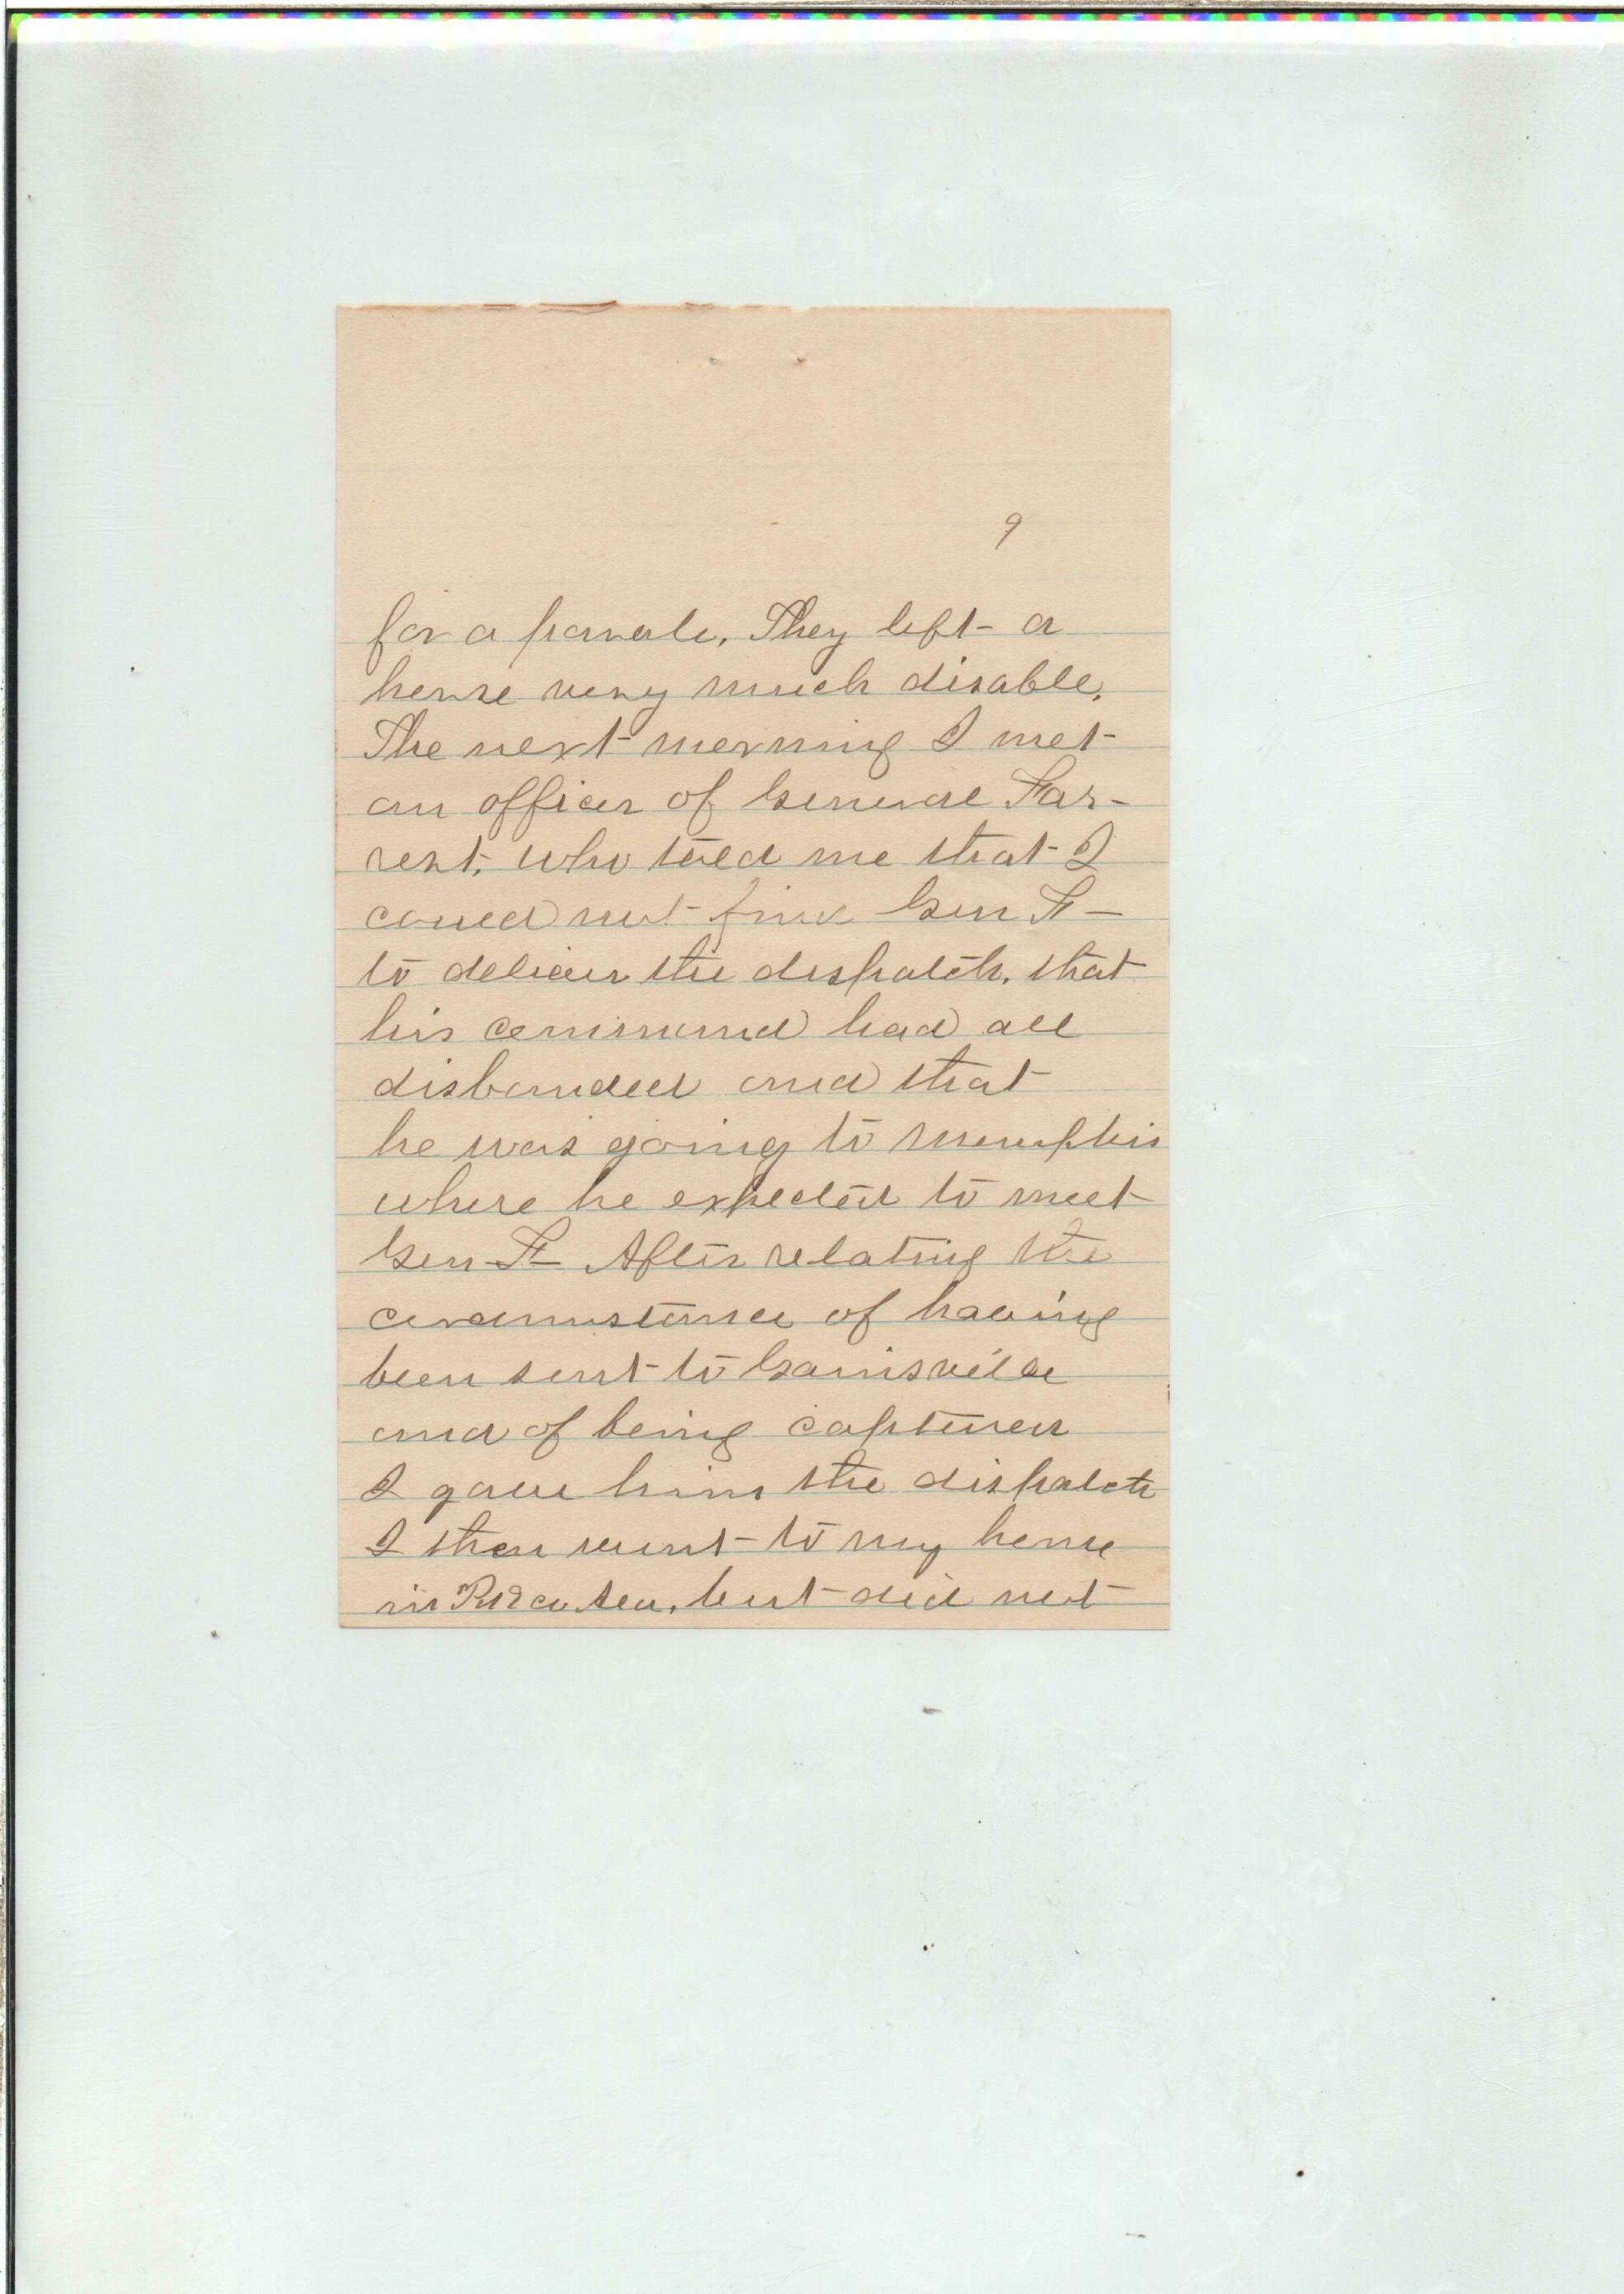 9
for a parole. They left a
horse very much disable.
The next morning I met
an officer of General For-
rest, who told me that I
could not find Gen F—
to deliver the dispatch, that
his command had all
disbanded and that
he was going to Memphis
where he expected to meet
Gen F— After relating the
circumstance of having
been sent to Gainsville
and of being captured
I gave him the dispatch
I then went to my home
in co. but did not